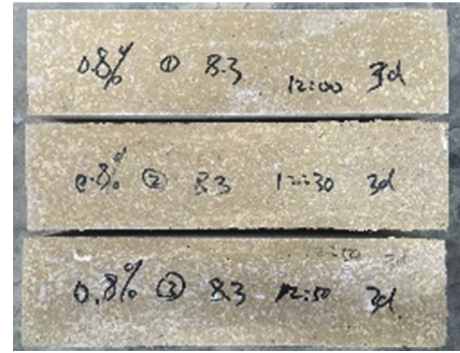 0.8% ① 8.3 12:00 3d
0.8% ② 8.3 12:30 3d
0.8% ③ 8.3 12:50 3d